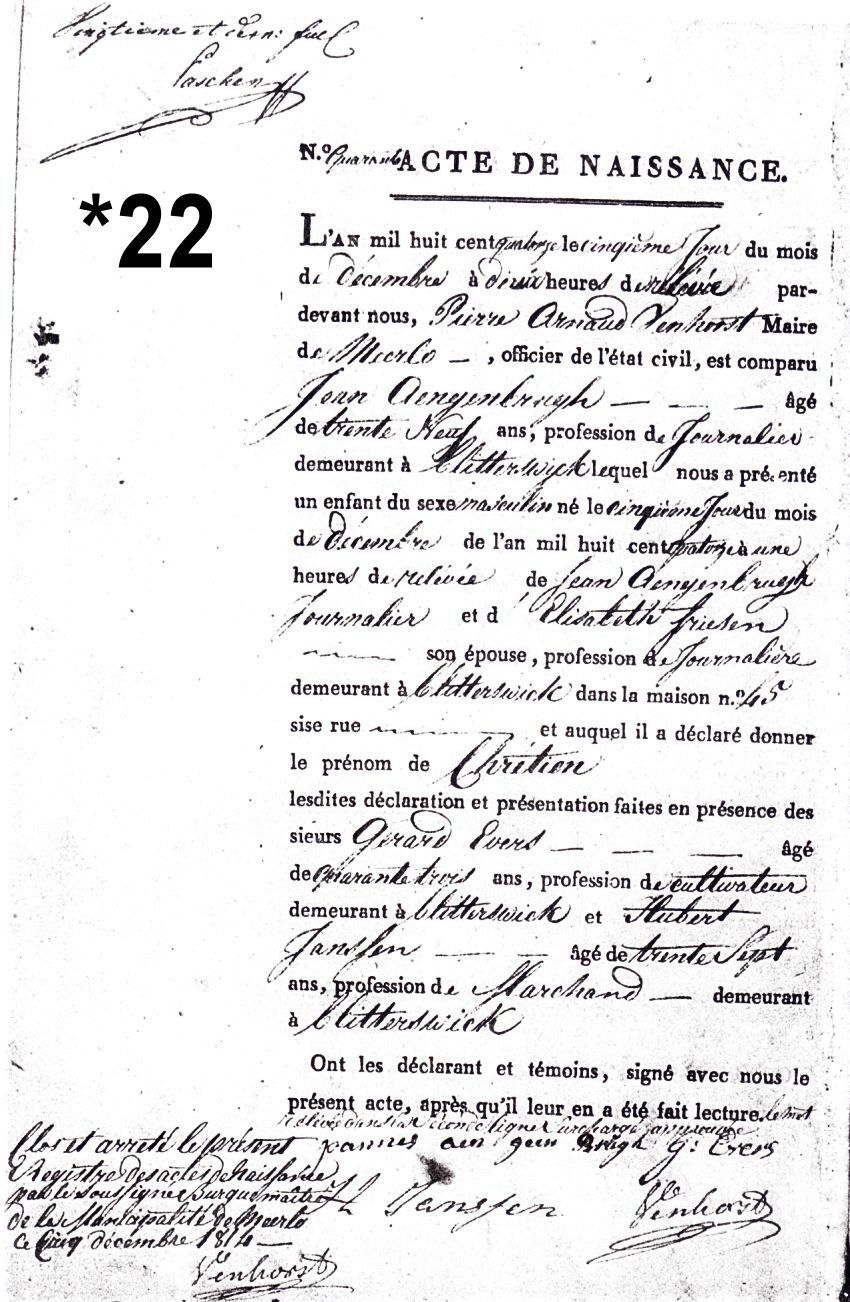 Vingtieme et dern: fuel
Paschen
*22
N.º Quarante ACTE DE NAISSANCE.
L'AN mil huit cent quatorze le cinqième Jour du mois
de décembre à deux heures de relévée par-
devant nous, Pierre Arnaud Venhorst Maire
de Meerlo — , officier de l'état civil, est comparu
Jean Aengenbrugh — — — âgé
de trente Neuf ans, profession de Journalier
demeurant à Blitterswyck lequel nous a présenté
un enfant du sexe masculin né le cinqième Jour du mois
de Décembre de l'an mil huit cent quatorze à une
heures de relévée de Jean Aengenbrugh
Journalier et d' Elisabeth friesen
son épouse, profession de Journalière
demeurant à Blitterswick dans la maison n.º 45
sise rue et auquel il a déclaré donner
le prénom de Chrétien
lesdites déclaration et présentation faites en présence des
sieurs Gerard Evers — — — âgé
de quarante trois ans, profession de cultivateur
demeurant à Blitterswick et Hubert
Janssen — — âgé de trente Sept
ans, profession de Marchand — demeurant
à Blitterswick
Ont les déclarant et témoins, signé avec nous le
présent acte, après qu'il leur en a été fait lecture. le mot
relévé dans la seconde ligne
joannes aen gen Brugh G: Evers
H Janssen Venhorst
Clos et arreté le présent
Registre des actes de Naissance
par le soussigné
de la Municipalité de Meerlo
ce Cinq décembre 1814 —
Venhorst